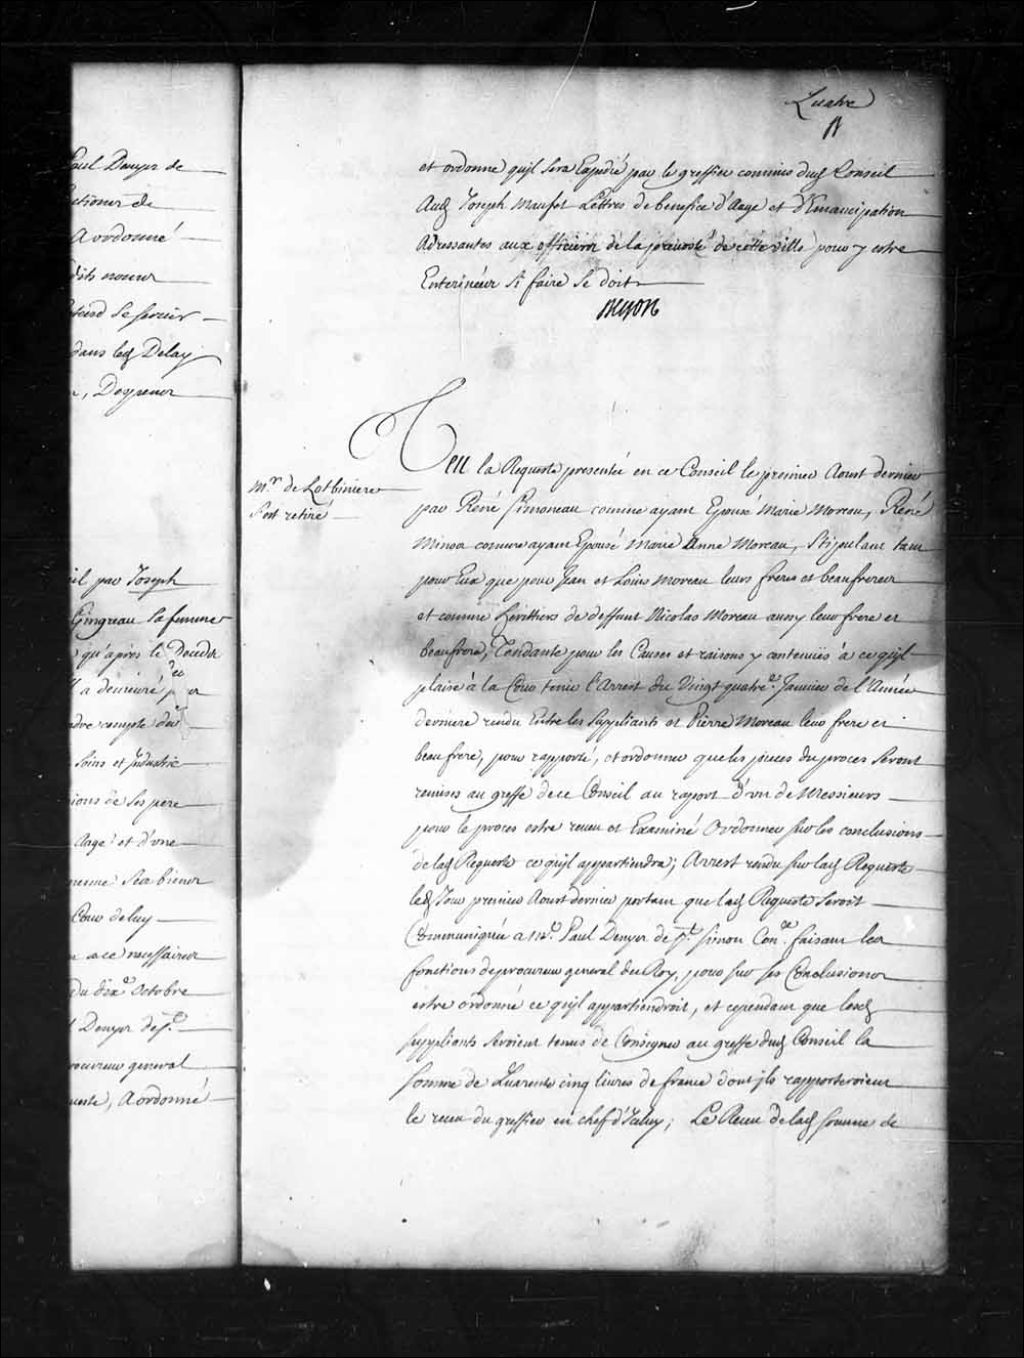 Quatre
Paul Denys de
ctioner de
a ordonné
dits
dans led Delay
n, Degrener
eil par Joseph
Gingreau sa femme
qu'après le Decedes
il a demeuré
dre compte du
soins et Industrie
ions de ses pere
aage et d'une
Cour de luy
a ace necessaires
Du dixe Octobre
Denys de St
rocureur general
ueste, A ordonné
et ordonne quil sera Expedié par le greffier commis dud Conseil
Aud Joseph Maufet Lettres de benefice d'Aage et d'Emancipation
Adressantes aux officiers de la prevosté de cette ville pour y estre
Enterinées si faire se doit
Begon
Mr. de Lotbiniere
sest retiré
Veu la Requeste presentée en ce Conseil le premier Aoust dernier
par René Simoneau comme ayant Epousé Marie Moreau, René
Minos comme ayant Epousé Marie Anne Moreau, Stipulant tant
pour Eux que pour Jean et Louis Moreau leurs freres et beaufreres
et comme Heritiers de deffunt Nicolas Moreau aussy leur frere et
beaufrere, Tendante pour les Causes et raisons y contenües à ce quil
plaise à la Cour tenir l'Arrest du Vingt quatre Janvier de l'Année
derniere rendu Entre les supliants et Pierre Moreau leur frere et
beaufrere, pour rapporté, et ordonner que les pieces du proces seront
remises au greffe de ce Conseil au raport d'un de Messieurs
pour le proces estre reveu et Examiné Ordonner sur les conclusions
de lad Requeste ce quil appartiendra; Arrest rendu sur lad Requeste
led Jour premier Aoust dernier portant que lad Requeste seroit
Communiquée a Me. Paul Denys de St. Simon Conr. faisant les
fonctions de procureur general du Roy, pour sur ses Conclusions
estre ordonné ce quil appartiendroit, et cependant que lesd
supliants seroient tenus de Consigner au greffe dud Conseil la
somme de Quarente cinq livres de france dont ils rapporteroient
le receu du greffier en chef d'Iceluy; Le Receu de lad somme de